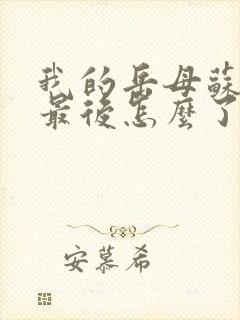 我的岳母蘇
最後怎麼了
安慕希